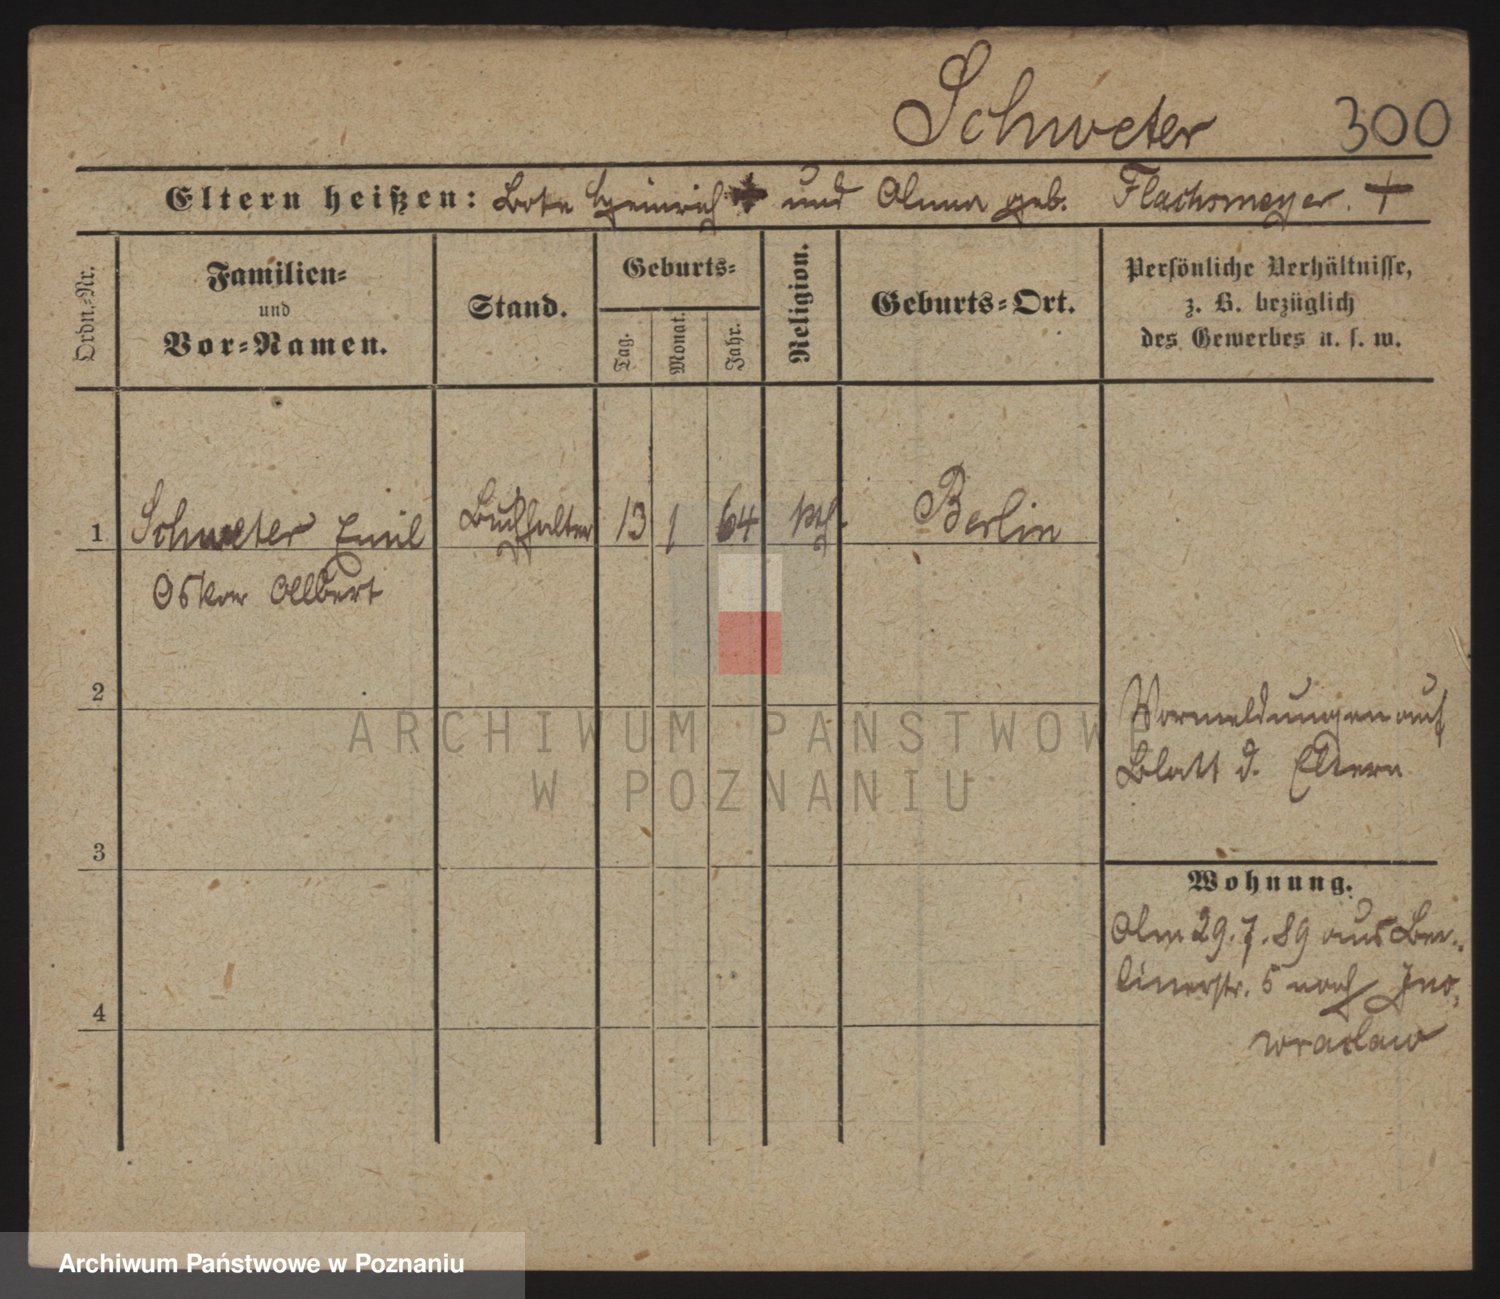 Schweter 300
Eltern heißen: Bote Heinrich und Anna geb. Flachsmeyer. †
Ordn.-Nr.
Familien-
und
Vor-Namen.
Stand.
Geburts-
Tag.
Monat.
Jahr.
Religion.
Geburts-Ort.
Persönliche Verhältnisse,
z. B. bezüglich
des Gewerbes u. s. w.
1 Schweter Emil Buchhalter 13 1 64 Berlin
Oskar Albert
2
Vormeldungen auf
Blatt d. Eltern
3
Wohnung.
Am 29.7.89 aus Ber-
linerstr. 5 nach Ino-
wraclaw
4
ARCHIWUM PAŃSTWOWE
W POZNANIU
Archiwum Państwowe w Poznaniu